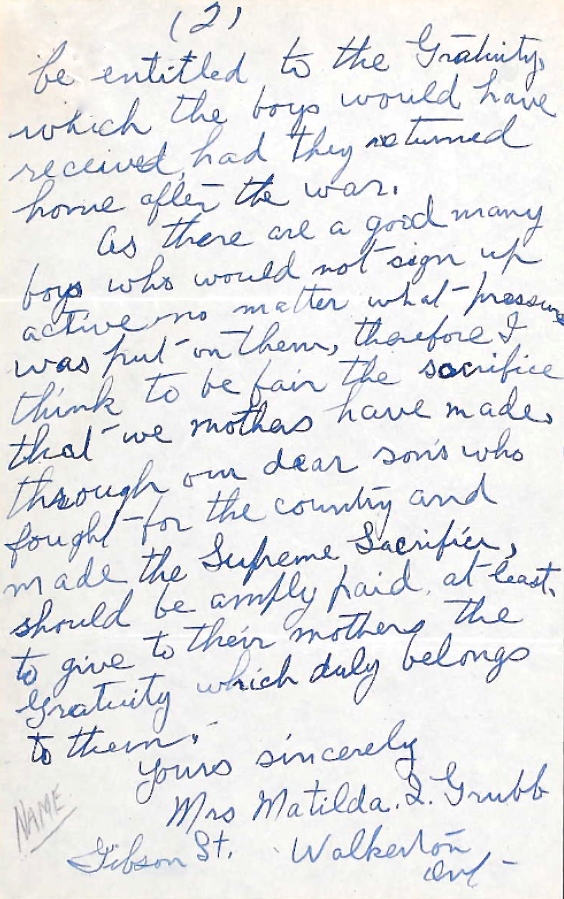 (2)
be entitled to the Gratuity,
which the boys would have
received, had they returned
home after the war.
As there are a good many
boys who would not sign up
active no matter what pressure
was put on them, therefore I
think to be fair the sacrifice
that we mothers have made,
through our dear sons who
fought for the country and
made the Supreme Sacrifice,
should be amply paid. at least.
to give to their mothers the
Gratuity which duly belongs
to them.
Yours sincerely
Mrs Matilda. I. Grubb
NAME
Gibson St. Walkerton
Ont